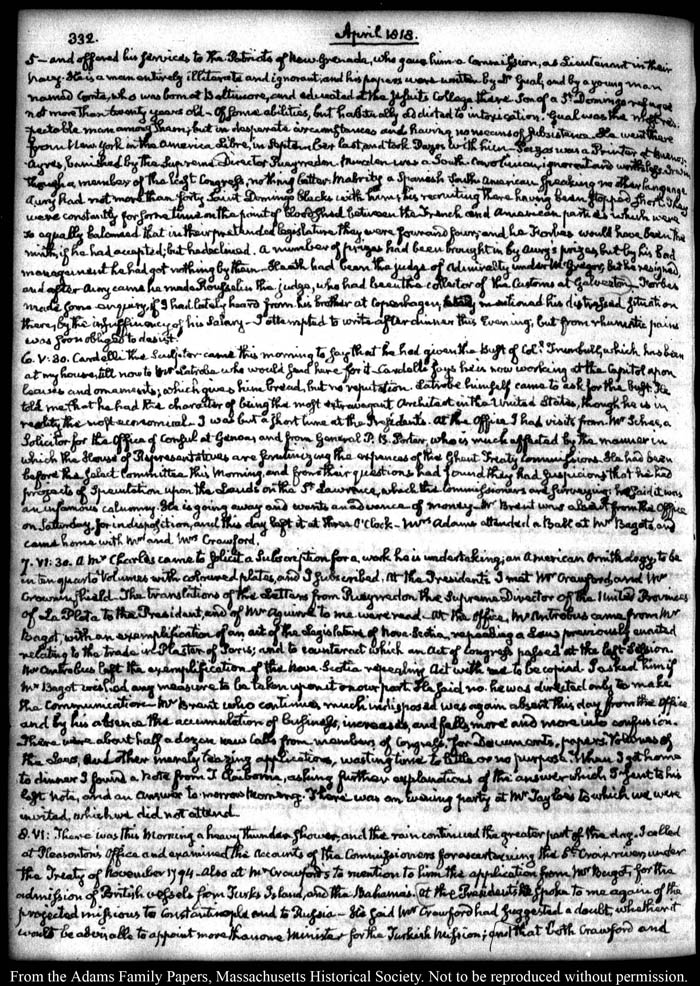 332. April 1818.
5 — and offered his services to the Patriots of New Grenada, who gave him a Commission, as Lieutenant in their
navy. He is a man entirely illiterate and ignorant, and his papers were written by Dr Gual, and by a young man
named Conte, who was born at Baltimore, and educated at the Jesuits College there. Son of a St Domingo refugee
not more than twenty years old — Of some abilities, but habitually addicted to intoxication. Gual was the most res-
pectable man among them; but in desperate circumstances and having no means of subsistance. He went there
from New York in the America Libre, in September last and took Pazos with him — Pazos was a Printer at Buenos
Ayres, banished by the Supreme Director Pueyrredon. Murden was a South-Carolinian, ignorant and worthless. Irwin
though a member of the last Congress, nothing better. Mabrity a Spanish South American speaking no other language
Aury had not more than forty Saint Domingo blacks with him; his recruiting there having been stopped short. They
were constantly for some time on the point of bloodshed between the French and American parties which were
so equally balanced that in their pretended legislature they were four and four; and he Forbes would have been the
ninth, if he had accepted; but he declined. A number of prizes had been brought in by Aury's prizes, but by his bad
management he had got nothing by them — Heath had been the judge of Admiralty under McGregor, but he resigned
and after Aury came he made Rousselin the judge, who had been the collector of the Customs at Galveston. Forbes
made some enquiry, if I had lately heard from his brother at Copenhagen, mentioned his distressed situation
there, by the insufficiency of his Salary — I attempted to write after dinner this Evening; but from rheumatic pains
was soon obliged to desist.
6. V:30. Cardelli the Sculptor came this morning to say that he had given the Bust of Coll Trumbull, which has been
at my house, till now to Mr Latrobe who would send here for it. Cardelli says he is now working at the Capitol upon
leaves and ornaments; which gives him bread, but no reputation. Latrobe himself came to ask for the bust. He
told me that he had the character of being the most extravagant Architect in the United States, though he is in
reality the most economical — I was but a short time at the Presidents. At the Office I had visits from Mr Schee, a
Solicitor for the Office of Consul at Genoa; and from General P. B. Porter, who is much affected by the manner in
which the House of Representatives are scrutinizing the expences of the Ghent Treaty Commissions. He had been
before the Select Committee this Morning, and from their questions had found they had suspicions that he had
projects of Speculation upon the Lands on the St Lawrence, which the Commissioners are surveying; he said it was
an infamous calumny. He is going away and wants an advance of money. Mr Brent was absent from the Office
on Saturday, for indisposition, and this day left it at three O'Clock — Mrs Adams attended a Ball at Mr Bagot's, and
came home with Mr and Mrs Crawford.
7. VI:30. A Mr Charles came to solicit a subscription for a work he is undertaking; an American Ornithology; to be
in ten quarto Volumes with coloured plates, and I subscribed. At the Presidents I met Mr Crawford, and Mr
Crowninshield. The translations of the Letters from Pueyrredon the Supreme Director of the United Provinces
of La Plata to the President, and of Mr Aguirre to me were read — At the Office, Mr Antrobus came from Mr
Bagot, with an exemplification of an act of the Legislature of Nova-Scotia, repealing a Law previously enacted
relating to the trade in Plaster of Paris; and to counteract which an Act of Congress passed at the last Session.
Mr Antrobus left the exemplification of the Nova Scotia repealing Act with me to be copied. I asked him if
Mr Bagot wished any measure to be taken upon it on our part. He said no. he was directed only to make
the Communication — Mr Brent who continues much indisposed was again absent this day from the Office
and by his absence the accumulation of business, increases, and falls more and more into confusion.
There were about half a dozen new calls from members of Congress, for Documents, papers, Volumes of
the Laws, and other merely teazing applications, wasting time to little or no purpose. When I got home
to dinner I found a Note from T Claiborne, asking further explanations of the answer which I sent to his
last note, and an Answer to morrow morning. There was an evening party at Mr Tayloe's to which we were
invited, which we did not attend.
8. VI: There was this Morning a heavy thunder shower, and the rain continued the greater part of the day. I called
at Pleasonton's Office and examined the accounts of the Commissioners for ascertaining the St Croix river, under
the Treaty of November 1794. Also at Mr Crawford's to mention to him the application from Mr Bagot, for the
admission of British vessels from Turks Island, and the Bahama's. At the Presidents He spoke to me again of the
projected missions to Constantinople and to Russia — He said Mr Crawford had suggested a doubt, whether it
would be advisable to appoint more than one Minister for the Turkish Mission; and that both Crawford and
From the Adams Family Papers, Massachusetts Historical Society. Not to be reproduced without permission.